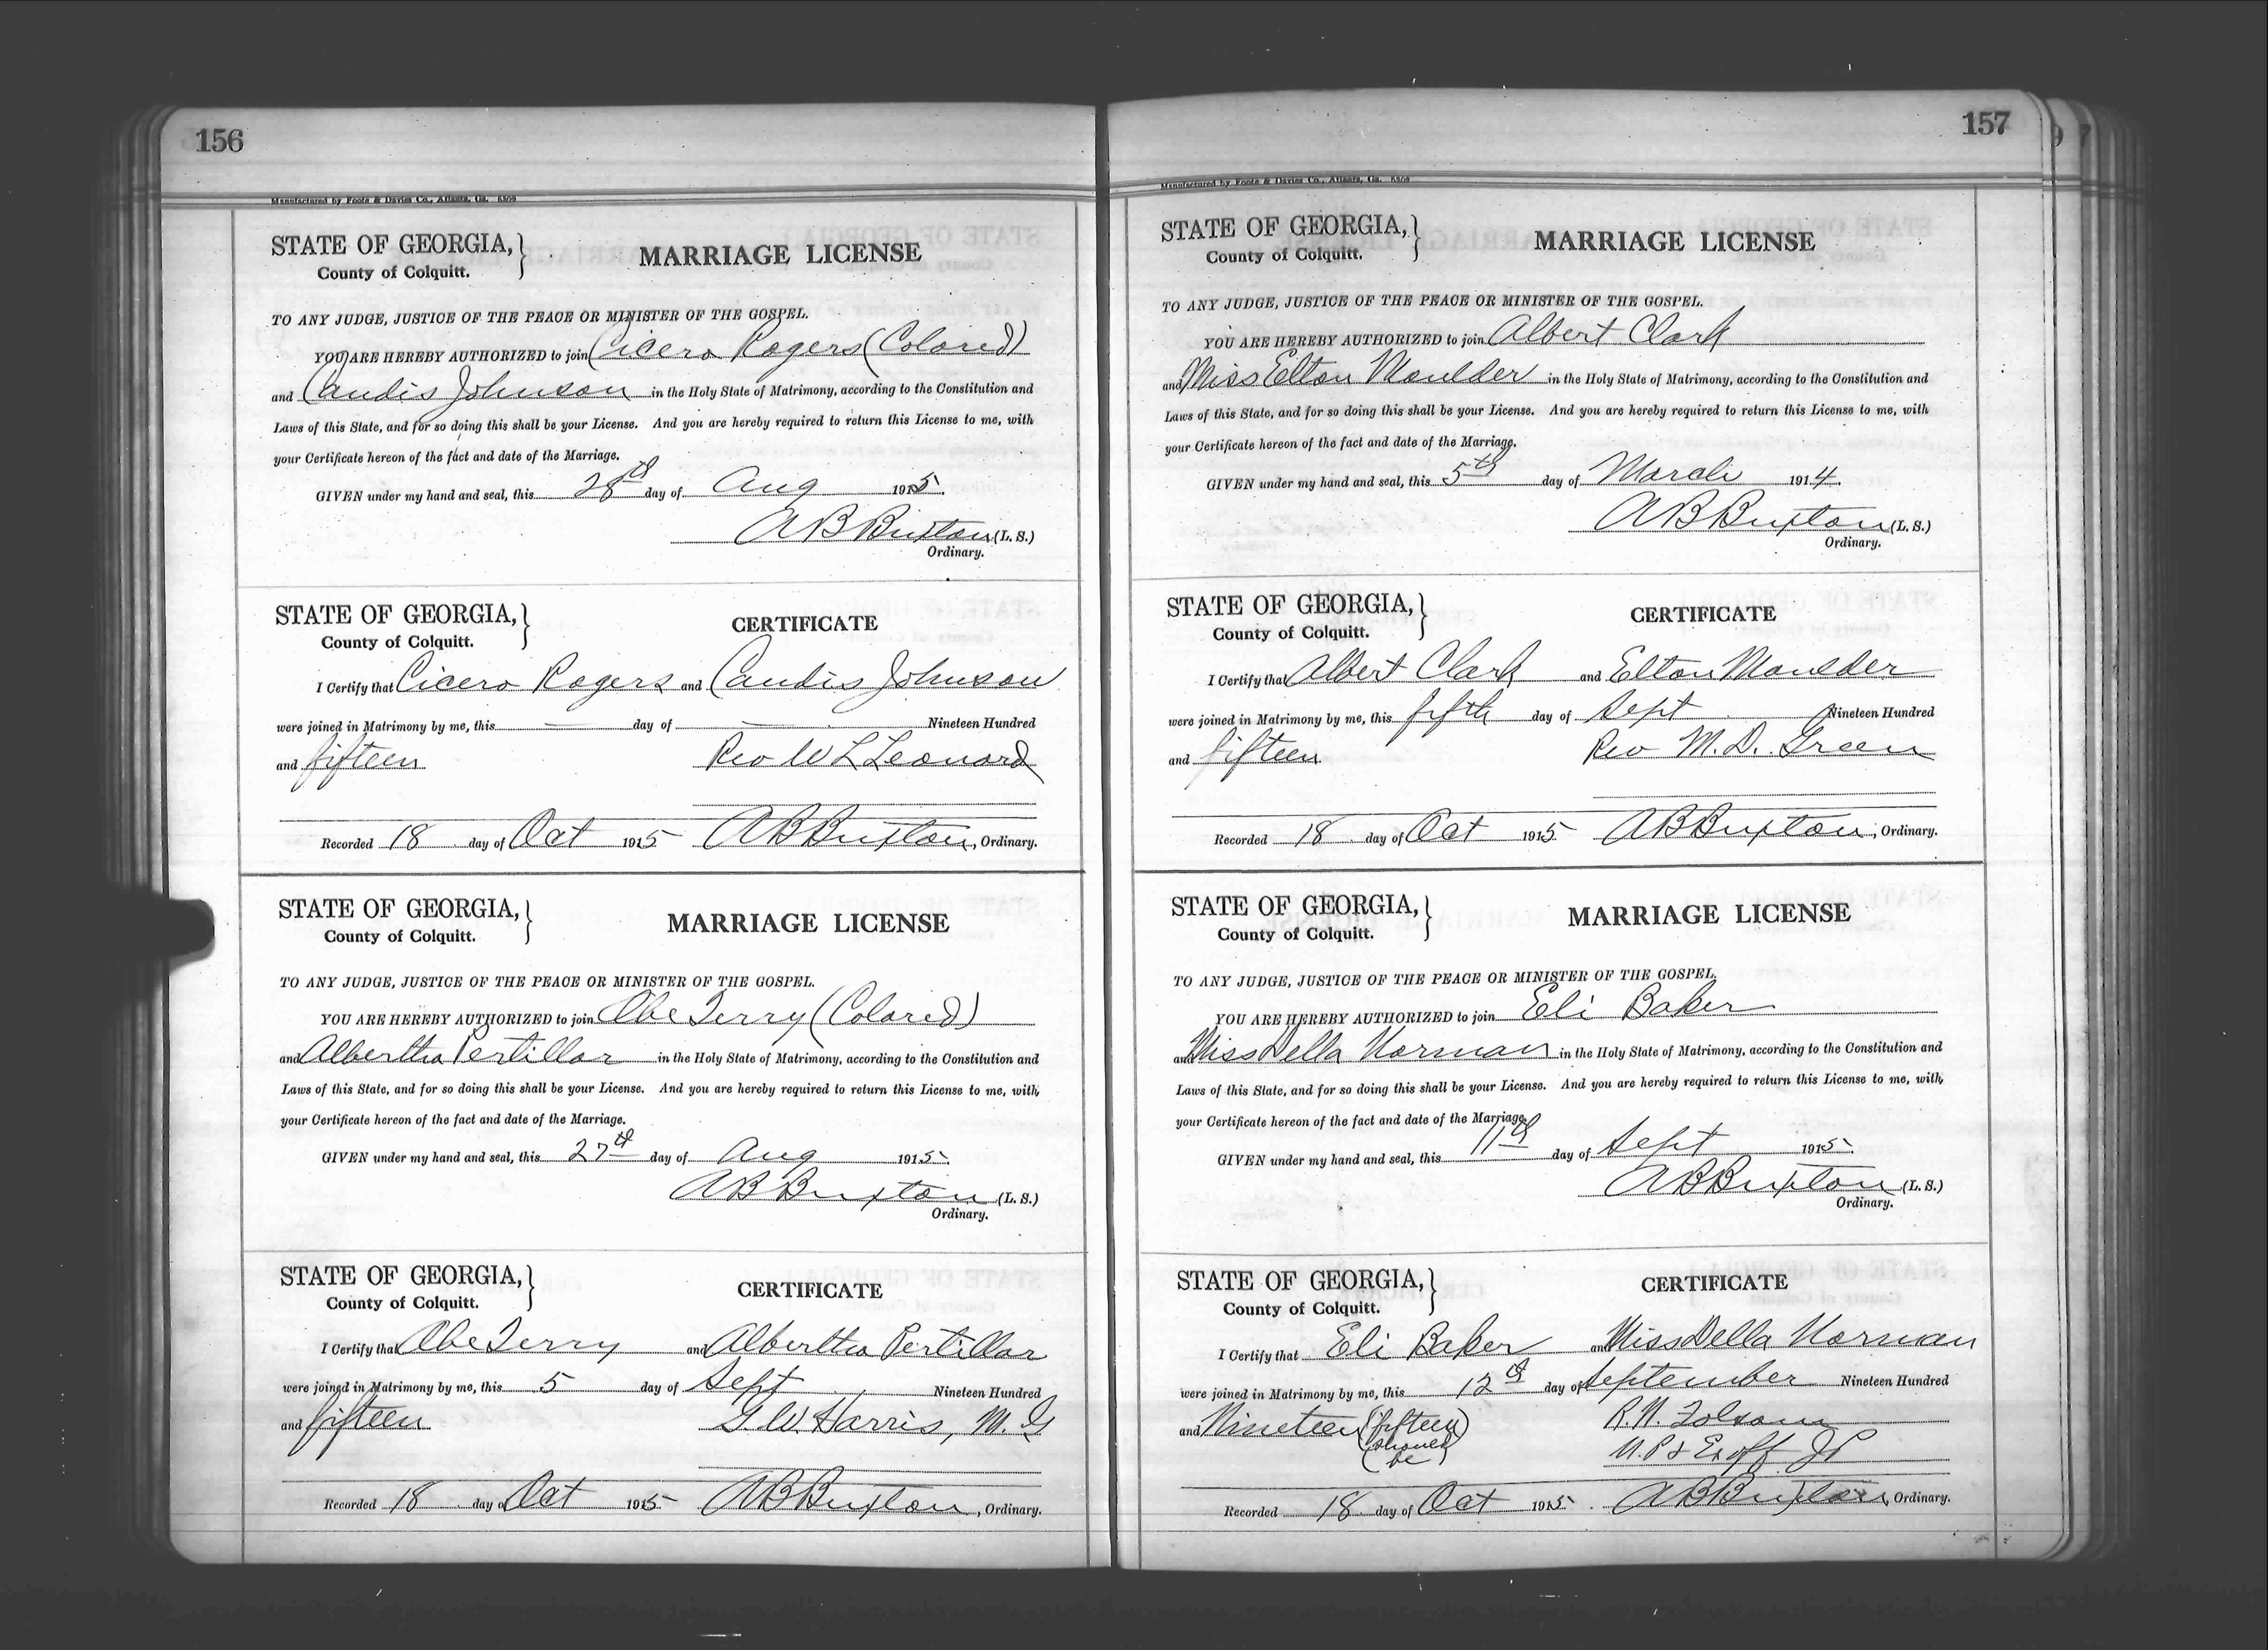 156
Manufactured by Foote & Davies Co., Atlanta, Ga.
STATE OF GEORGIA,
County of Colquitt.
MARRIAGE LICENSE
TO ANY JUDGE, JUSTICE OF THE PEACE OR MINISTER OF THE GOSPEL.
YOU ARE HEREBY AUTHORIZED to join Cicero Rogers (Colored)
and Candis Johnson in the Holy State of Matrimony, according to the Constitution and
Laws of this State, and for so doing this shall be your License. And you are hereby required to return this License to me, with
your Certificate hereon of the fact and date of the Marriage.
GIVEN under my hand and seal, this 28th day of Aug 1915.
A B Buxton (L. S.)
Ordinary.
STATE OF GEORGIA,
County of Colquitt.
CERTIFICATE
I Certify that Cicero Rogers and Candis Johnson
were joined in Matrimony by me, this — day of — Nineteen Hundred
and fifteen Rev W L Leonard
Recorded 18 day of Oct 1915 A B Buxton, Ordinary.
STATE OF GEORGIA,
County of Colquitt.
MARRIAGE LICENSE
TO ANY JUDGE, JUSTICE OF THE PEACE OR MINISTER OF THE GOSPEL.
YOU ARE HEREBY AUTHORIZED to join Obe Terry (Colored)
and Albertha Pertillar in the Holy State of Matrimony, according to the Constitution and
Laws of this State, and for so doing this shall be your License. And you are hereby required to return this License to me, with
your Certificate hereon of the fact and date of the Marriage.
GIVEN under my hand and seal, this 27th day of Aug 1915.
A B Buxton (L. S.)
Ordinary.
STATE OF GEORGIA,
County of Colquitt.
CERTIFICATE
I Certify that Obe Terry and Albertha Pertillar
were joined in Matrimony by me, this 5 day of Sept Nineteen Hundred
and fifteen G. W. Harris, M. G
Recorded 18 day of Oct 1915 A B Buxton, Ordinary.
157
Manufactured by Foote & Davies Co., Atlanta, Ga.
STATE OF GEORGIA,
County of Colquitt.
MARRIAGE LICENSE
TO ANY JUDGE, JUSTICE OF THE PEACE OR MINISTER OF THE GOSPEL.
YOU ARE HEREBY AUTHORIZED to join Albert Clark
and Miss Elton Moulder in the Holy State of Matrimony, according to the Constitution and
Laws of this State, and for so doing this shall be your License. And you are hereby required to return this License to me, with
your Certificate hereon of the fact and date of the Marriage.
GIVEN under my hand and seal, this 5th day of March 1914.
A B Buxton (L. S.)
Ordinary.
STATE OF GEORGIA,
County of Colquitt.
CERTIFICATE
I Certify that Albert Clark and Elton Moulder
were joined in Matrimony by me, this fifth day of Sept Nineteen Hundred
and fifteen Rev M. D. Green
Recorded 18 day of Oct 1915 A B Buxton, Ordinary.
STATE OF GEORGIA,
County of Colquitt.
MARRIAGE LICENSE
TO ANY JUDGE, JUSTICE OF THE PEACE OR MINISTER OF THE GOSPEL.
YOU ARE HEREBY AUTHORIZED to join Eli Baker
and Miss Della Norman in the Holy State of Matrimony, according to the Constitution and
Laws of this State, and for so doing this shall be your License. And you are hereby required to return this License to me, with
your Certificate hereon of the fact and date of the Marriage.
GIVEN under my hand and seal, this 11th day of Sept 1915.
A B Buxton (L. S.)
Ordinary.
STATE OF GEORGIA,
County of Colquitt.
CERTIFICATE
I Certify that Eli Baker and Miss Della Norman
were joined in Matrimony by me, this 12th day of September Nineteen Hundred
and Nineteen (fifteen R. N. Folsom
(should
(be) N. P & Ex off JP
Recorded 18 day of Oct 1915. A B Buxton, Ordinary.